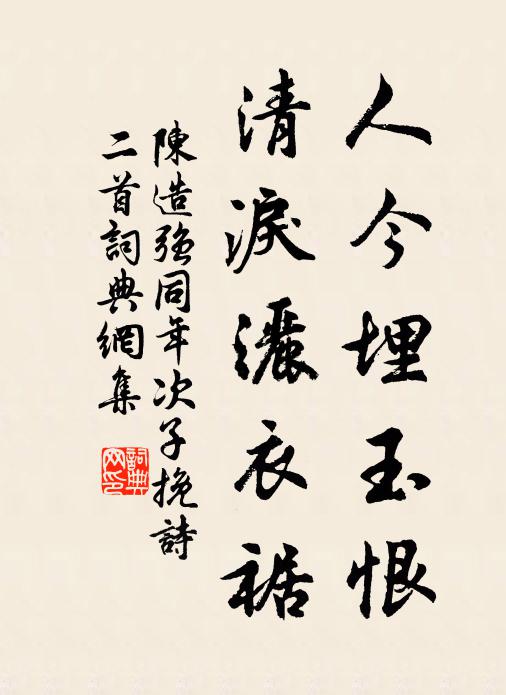 人今埋玉恨
清淚灑衣裾
陳造強同年次子挽詩
二首詞典網集
詞典网印